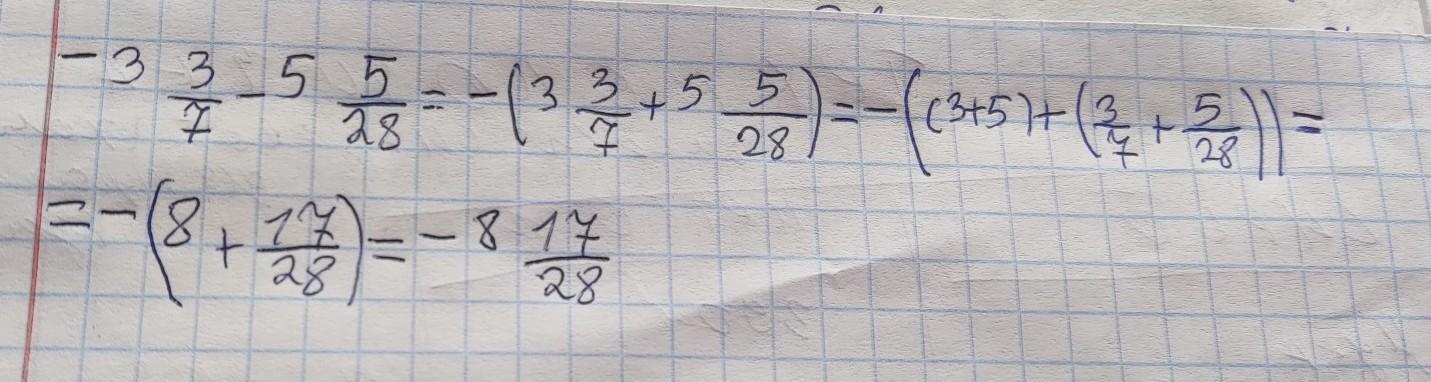 -3 3/7 - 5 5/28 = -(3 3/7 + 5 5/28) = -((3+5)+(3/7 + 5/28)) =
= -(8 + 17/28) = -8 17/28